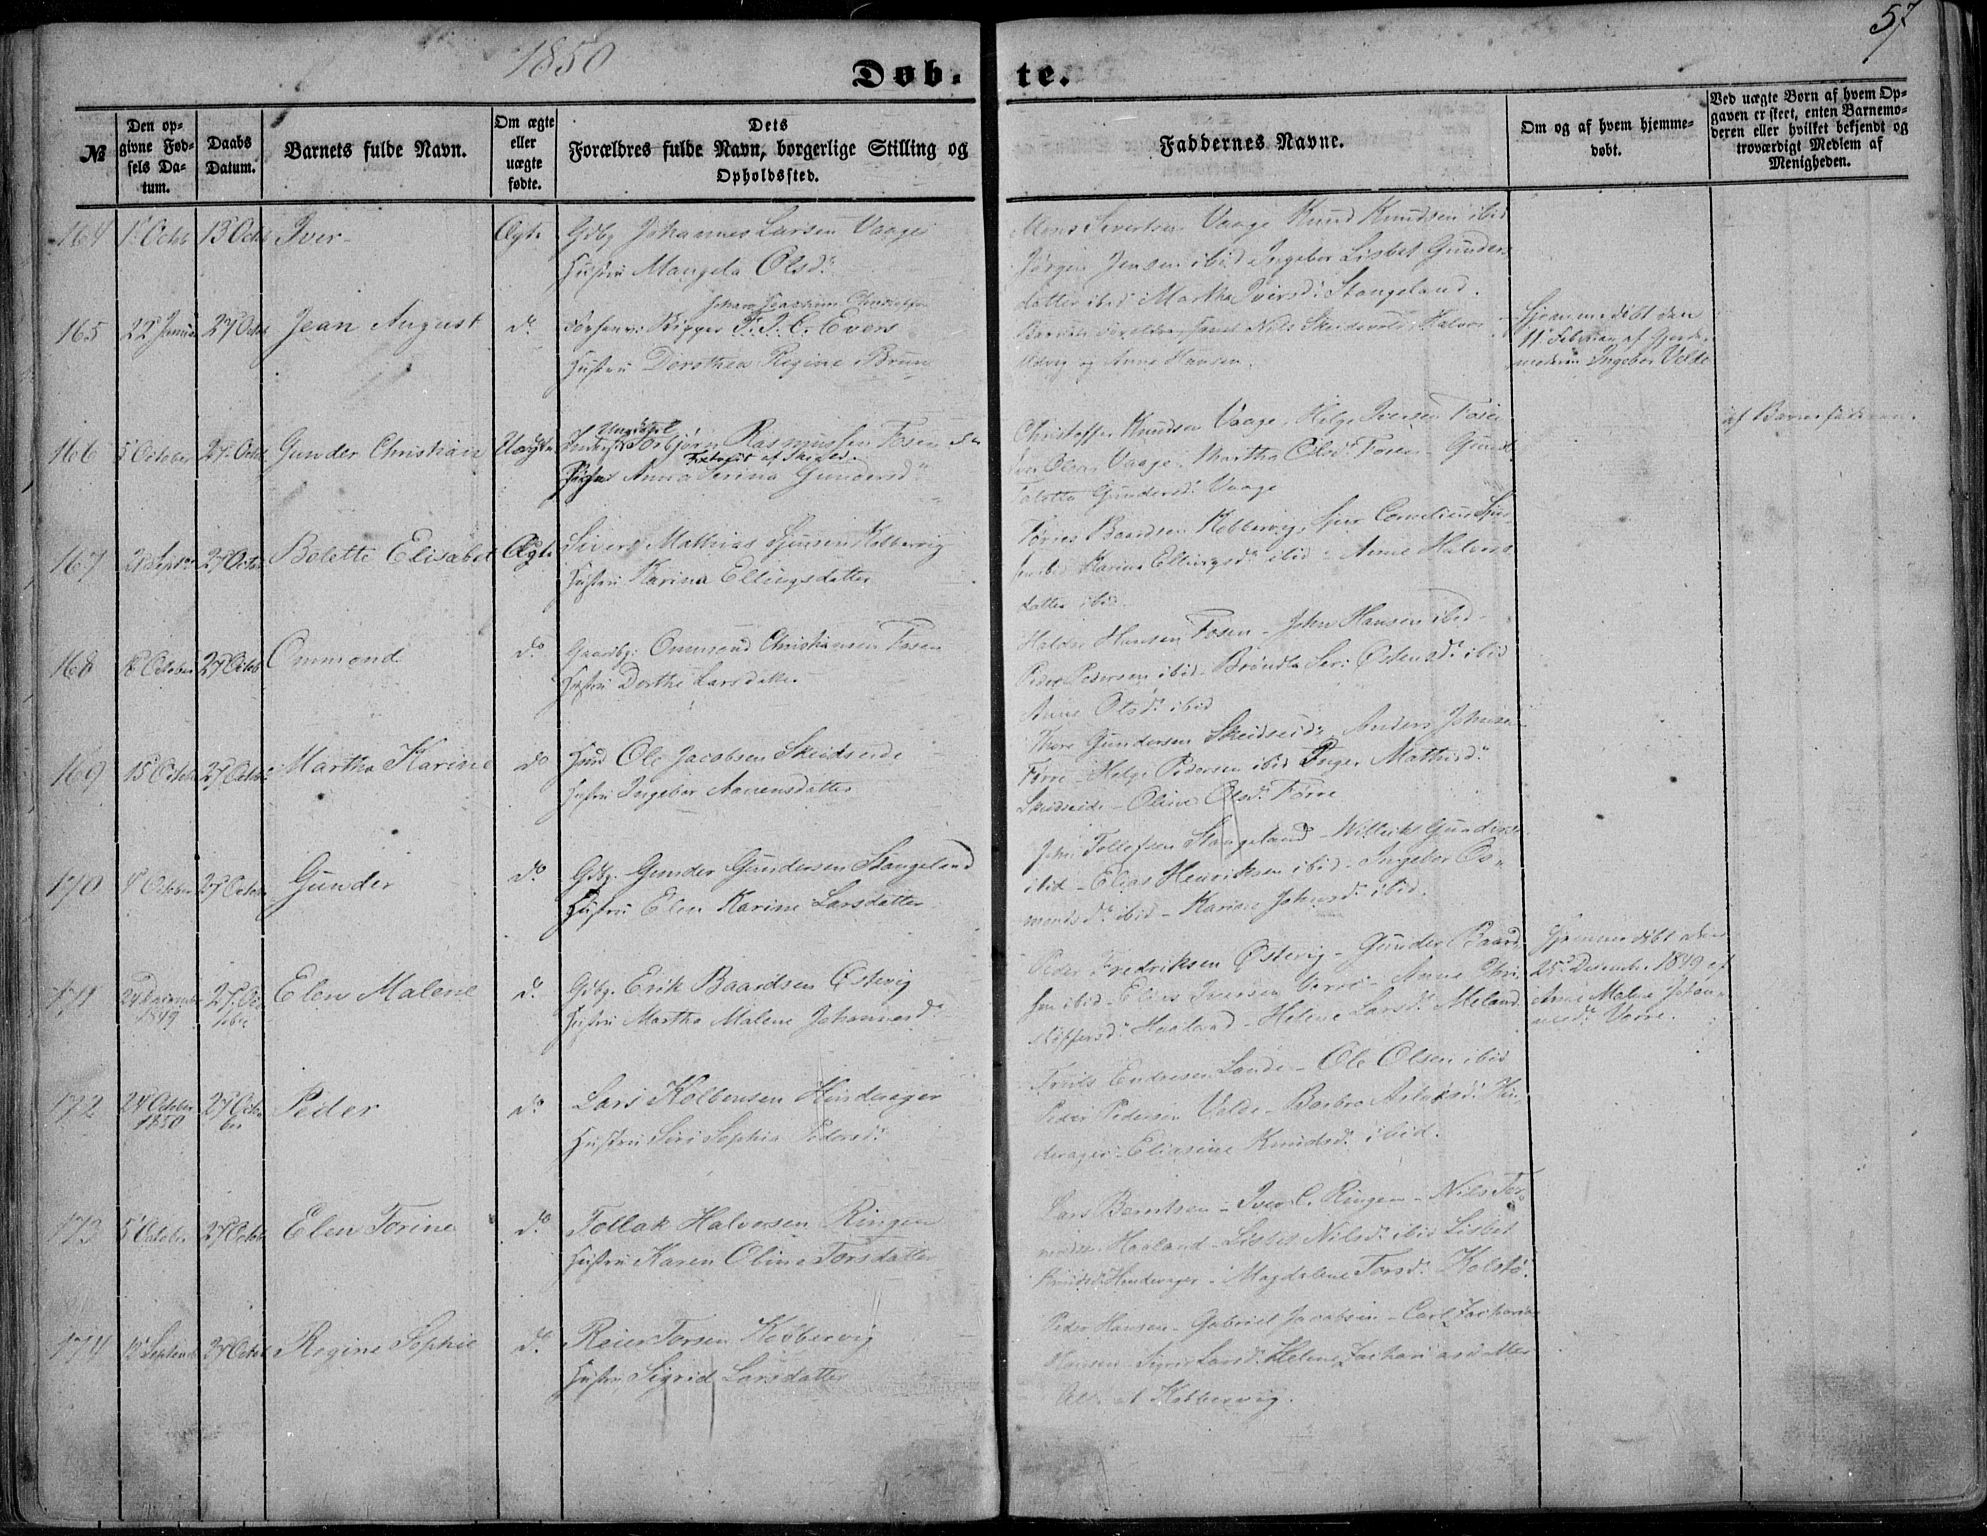 57
1850
Døb-te.
№
Den opgivne Fødsels Datum.
Daabs Datum.
Barnets fulde Navn.
Om ægte eller uægte fødte.
Dets Forældres fulde Navn, borgerlige Stilling og Opholdssted.
Faddernes Navne.
Om og af hvem hjemmedøbt.
Ved uægte Børn af hvem Opgaven er skeet, enten Barnemoderen eller hvilket bekjendt og troværdigt Medlem af Menigheden.
164 1 Octb 13 Octb Iver Ægte Gdbg Johannes Larsen Vaage
Hustru Mangela Olsdr
Mons Sivertsen Vaage Knud Knudsen ibid
Jørgen Jensen ibid Ingebor Lisbet Gunders
datter ibid Martha Iversdr Stangeland.
165 22 Januar 27 Octb Jean August do Rigger J. J. C. Evers
Hustru Dorothea Regine Brun
og Anne Hansen.
Hjemmedøbt den
11 Februar af
Ingebor Velde
166 5 October 27 Octb Gunder Christian Uægte Torbjørn Rasmussen Fosen
Anna Serina Gundersdr
Christoffer Knudsen Vaage, Helge Iversen Fosen
Vaage. Martha Olsdr Fosen
Gundersdr Vaage
af Barnefaderen.
167 21 Septbr 27 Octbr Bolette Elisabet Ægte Sivert Mathias Kobbervig
Hustru Karina Ellingsdatter
Torres Baardsen Kobbervig, Cornelius
ibid Karina Ellingsdr ibid - Anne Halvors
datter ibid.
168 8 October 27 Octob Ommond do Gaardbg: Ommond Christiansen Fosen
Hustru Dorthe Larsdatter
Haldor Hansen Fosen - John Hansen ibid -
Peder Pedersen ibid - Østensdr ibid
Anne Olsdr ibid
169 15 Octob 27 Octob Martha Karine do Ole Jacobsen Skeidseide
Hustru Ingebor Aanensdatter
Thore Gundersen Skeidseide, Anders Johnsen
Førre - Helge Pedersen ibid Inger Mathisdr
Skeidseide - Oline Olsdr Førre
170 4 October 27 October Gunder do Gdbg. Gunder Gundersen Stangeland
Hustru Elen Karine Larsdatter
John Tollefsen Stangeland - Gunders
ibid - Elias Henriksen ibid - Ingebor Os-
mondsdr ibid - Karine Johnsdr ibid.
171 24 December 1849 27 Octobr Elen Malene do Gdbg. Erik Baardsen Østevig
Hustru Martha Malene Johannesdr
Peder Fredriksen Østevig - Gunder Baard
sen ibid - Elias Iversen Vorre - Anna Chri-
stoffersdr Haaland - Helene Larsdr Meland
Hjemmedøbt den
25 December 1849 af
Anne Malene Johan-
nesdr Vorre.
172 24 October 1850 27 October Peder do Lars Kolbensen Hinderager
Hustru Siri Sophia Pedersdr
Endresen Lande - Ole Olsen ibid
Peder Pedersen Velde - Barbro Aslaksdr Hin-
derager - Eliasine Knudsdr ibid.
173 5 October 27 Octobr Elen Torine do Tollak Halvorsen Ringen
Hustru Karen Oline Torsdatter
Lars Berentsen - Iver C. Ringen - Nils Tor-
Haaland - Lisbet Nilsdr ibid Lisbet
Knudsdr Hinderager - Magdelene Torsdr Kolstø.
174 12 Septemb 27 Octob Regine Sophie do Reier Torsen Kobbervig
Hustru Sigrid Larsdatter
Peder Hansen - Gabriel Jacobsen - Carl Zacharias
Hansen - Larsdr Helene Zachariasdatter
Kobbervig.